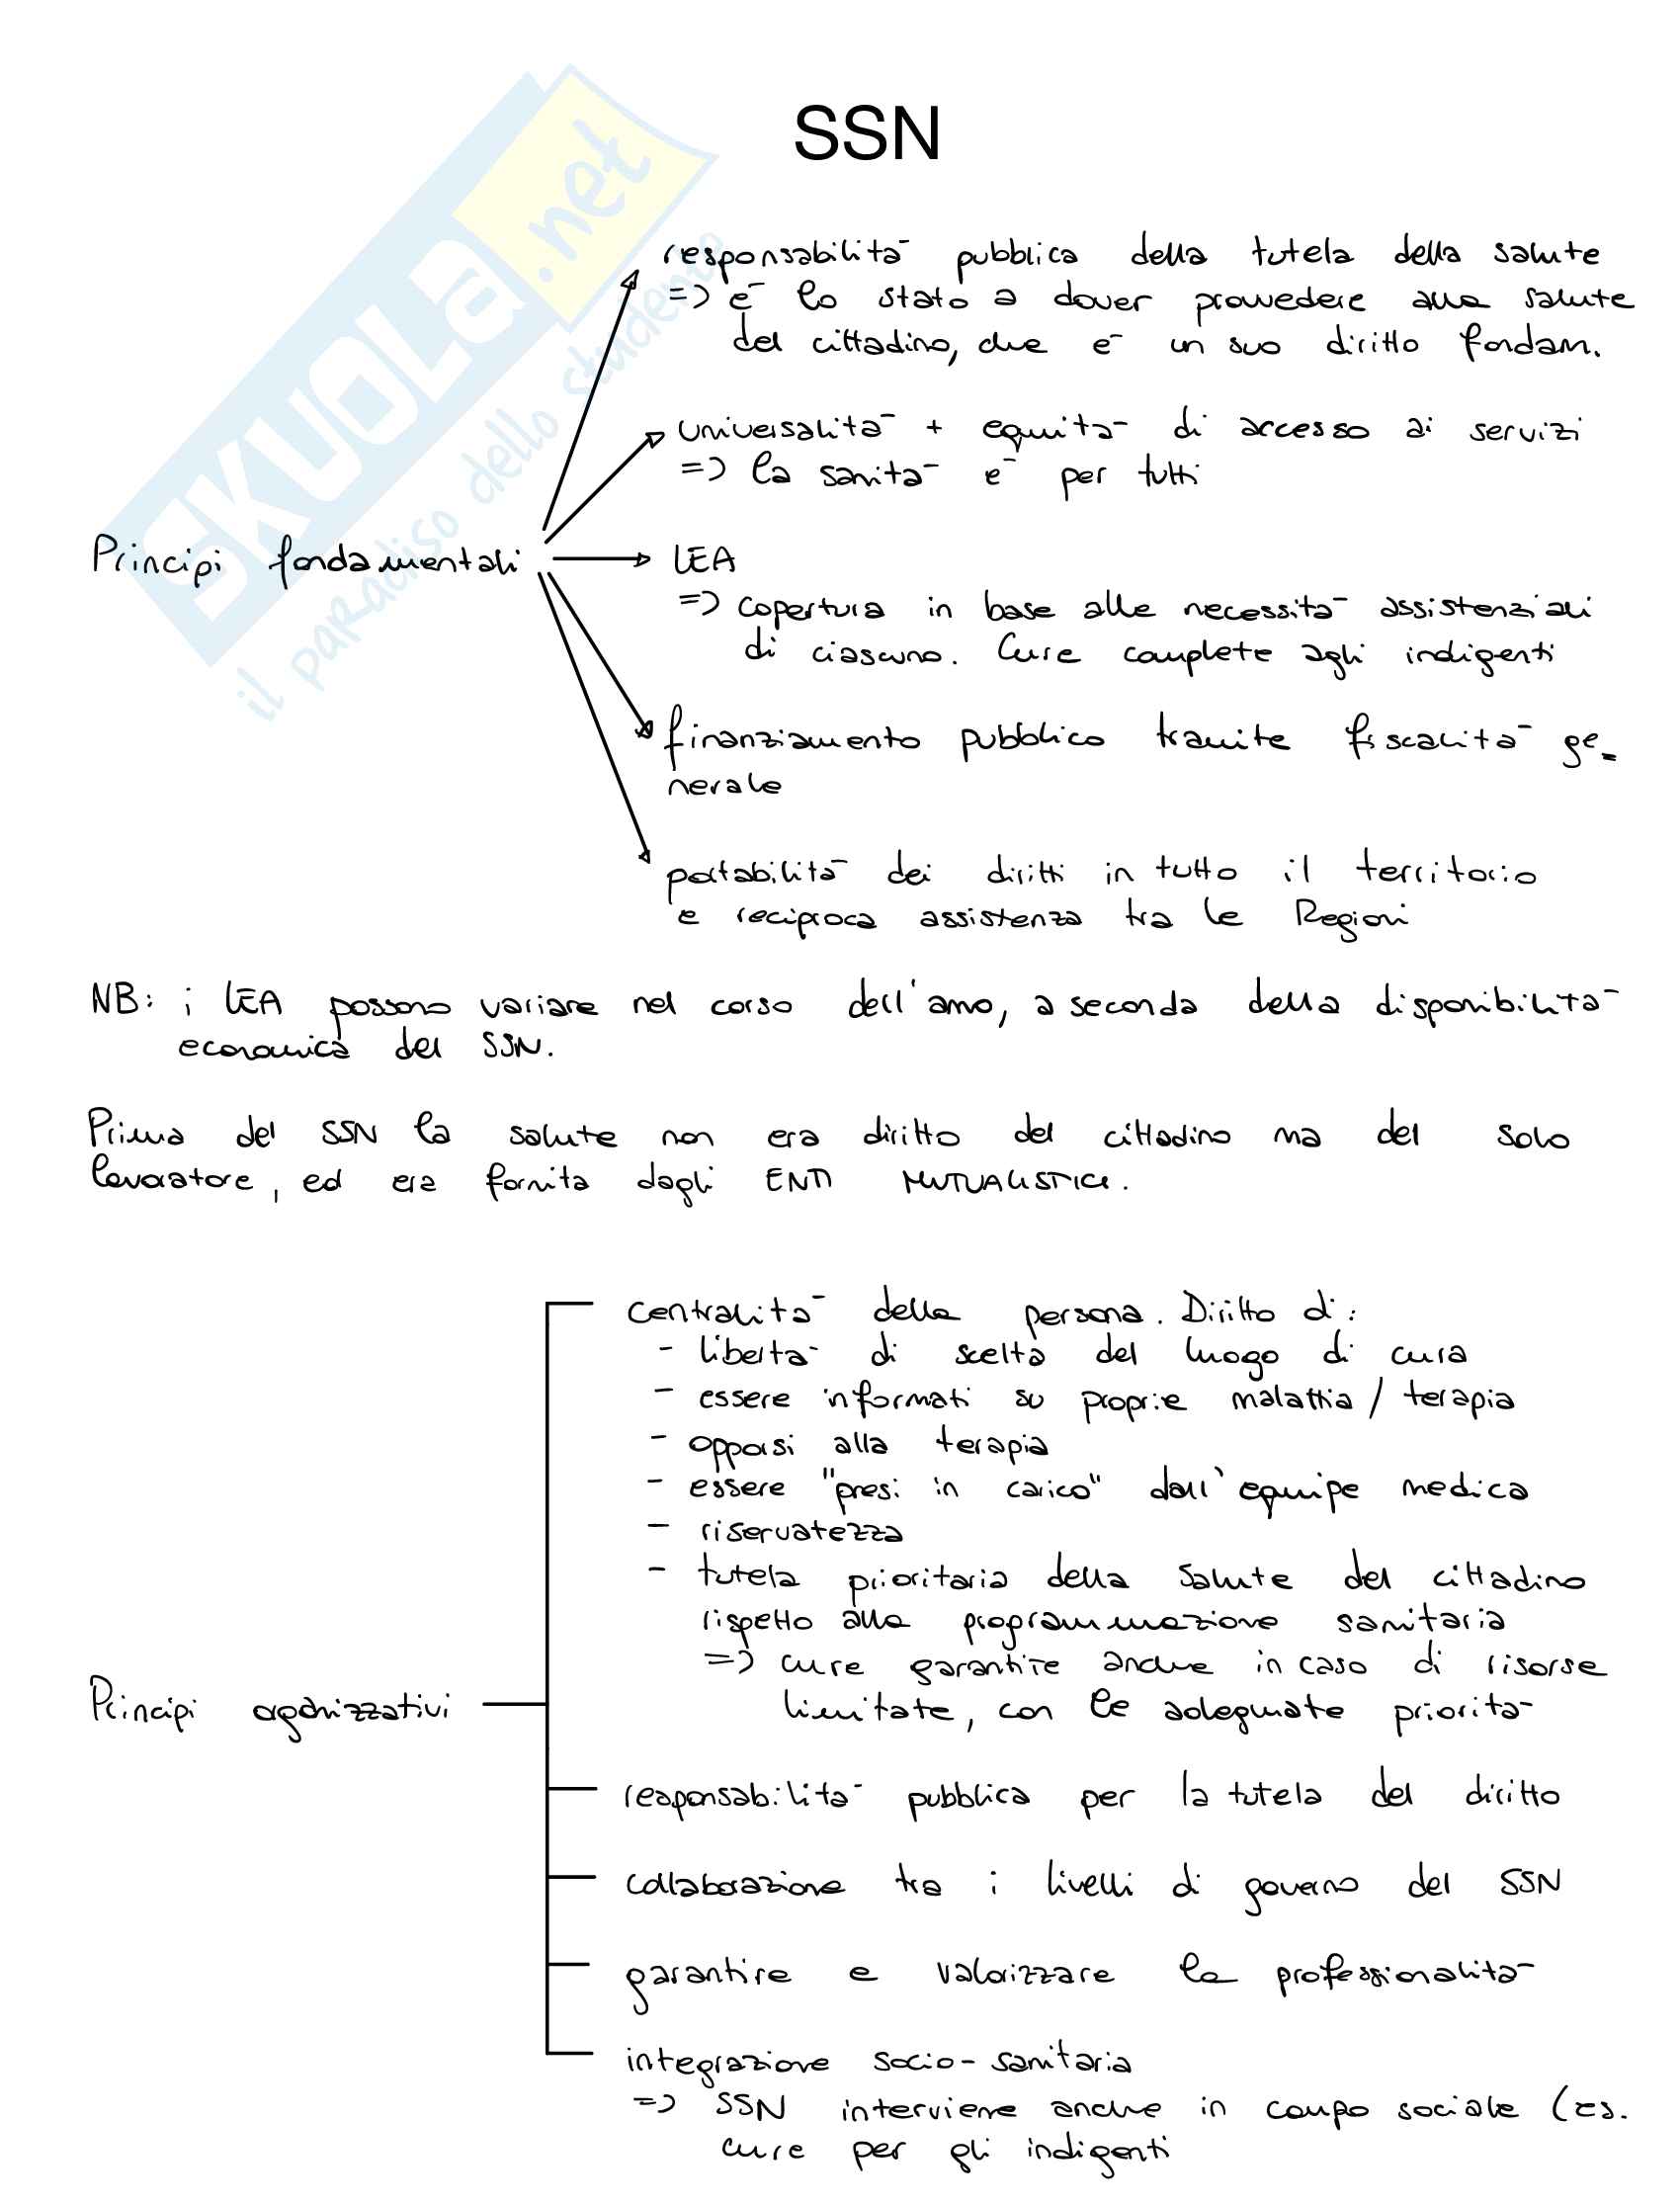 SSN
SKUOLA.net
il paradiso dello studente
responsabilità pubblica della tutela della salute
=> è lo stato a dover provvedere alla salute
del cittadino, che è un suo diritto fondam.
universalità + equità di accesso ai servizi
=> la sanità è per tutti
Principi fondamentali
LEA
=> copertura in base alle necessità assistenziali
di ciascuno. Cure complete agli indigenti
finanziamento pubblico tramite fiscalità ge=
nerale
portabilità dei diritti in tutto il territorio
e reciproca assistenza tra le Regioni
NB: i LEA possono variare nel corso dell'anno, a seconda della disponibilità
economica del SSN.
Prima del SSN la salute non era diritto del cittadino ma del solo
lavoratore, ed era fornita dagli ENTI MUTUALISTICI.
Principi organizzativi
centralità della persona. Diritto di:
- libertà di scelta del luogo di cura
- essere informati su proprie malattia / terapia
- opporsi alla terapia
- essere "presi in carico" dall'equipe medica
- riservatezza
- tutela prioritaria della salute del cittadino
rispetto alla programmazione sanitaria
=> cure garantite anche in caso di risorse
limitate, con le adeguate priorità
responsabilità pubblica per la tutela del diritto
collaborazione tra i livelli di governo del SSN
garantire e valorizzare la professionalità
integrazione socio-sanitaria
=> SSN interviene anche in campo sociale (es.
cure per gli indigenti